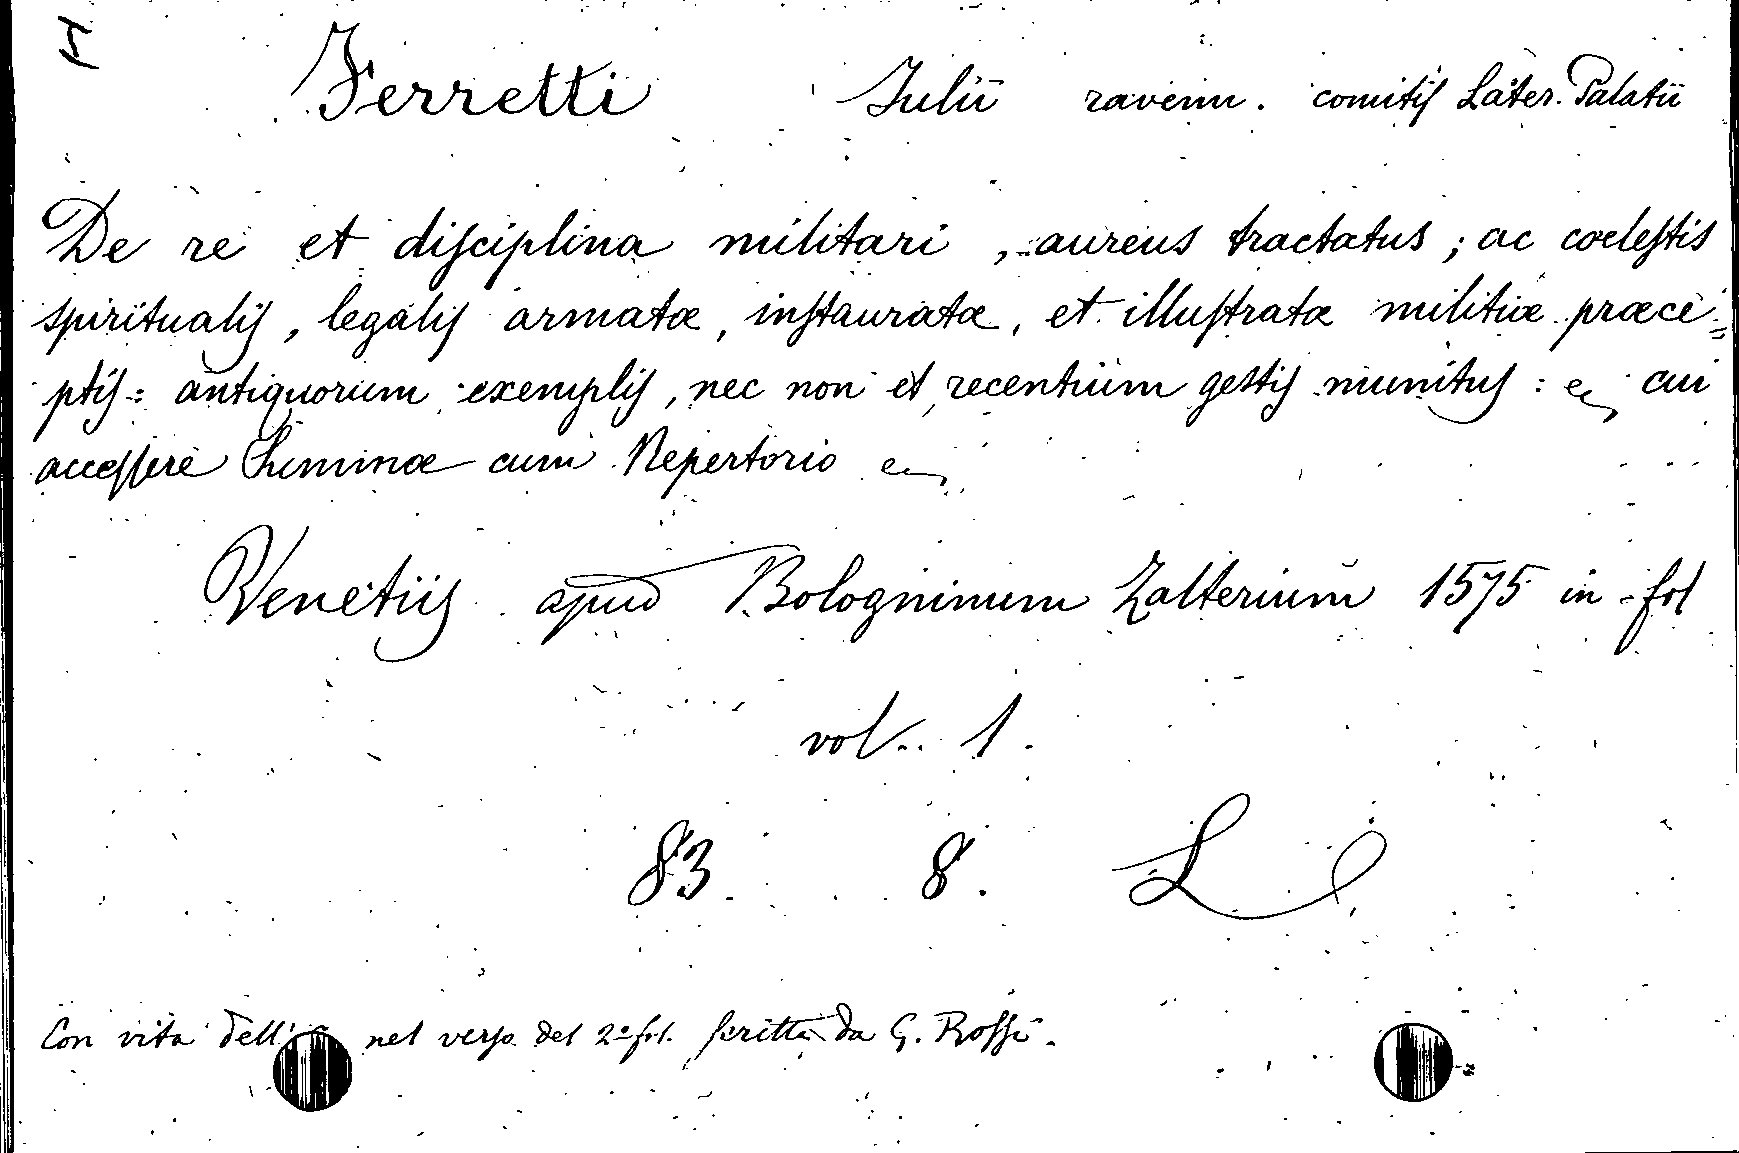 Ferretti Julii ravenn. comitis Later. Palatii
De re et disciplina militari, aureus tractatus; ac coelestis
spiritualis, legalis armatæ, instauratæ, et illustratæ militiæ præce=
ptis: antiquorum exemplis, nec non et recentium gestis munitus: cui
accessere Summæ cum Repertorio
Venetiis apud Bologninum Zalterium 1575 in fol
vol. 1.
83. 8. L
Con vita dell' nel verso del 2º fol. scritta da G. Rossi.